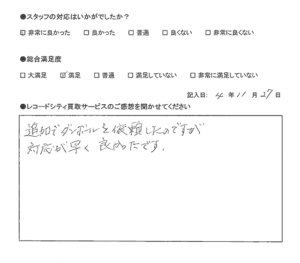 ●スタッフの対応はいかがでしたか？
☑ 非常に良かった □ 良かった □ 普通 □ 良くない □ 非常に良くない
●総合満足度
□ 大満足 ☑ 満足 □ 普通 □ 満足していない □ 非常に満足していない
記入日: 4 年 11 月 27 日
●レコードシティ買取サービスのご感想を聞かせてください
追加でダンボールを依頼したのですが
対応が早く 良かったです.